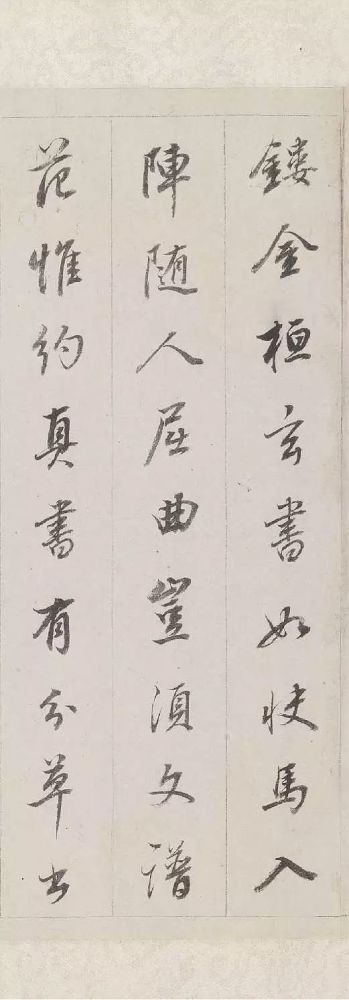 鏤金桓玄書如快馬入
陣随人屈曲豈須文譜
范惟約真書有分草書